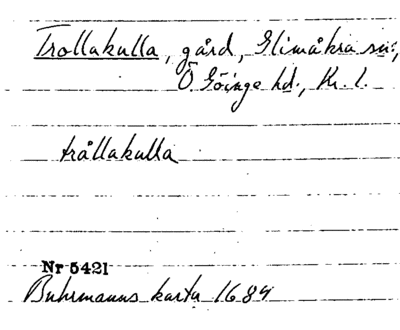 Trollakulla, gård, Glimåkra sn.,
Ö. Göinge hd., Kr. l.
trållakulla
Nr 5421
Buhrmanns karta 1684